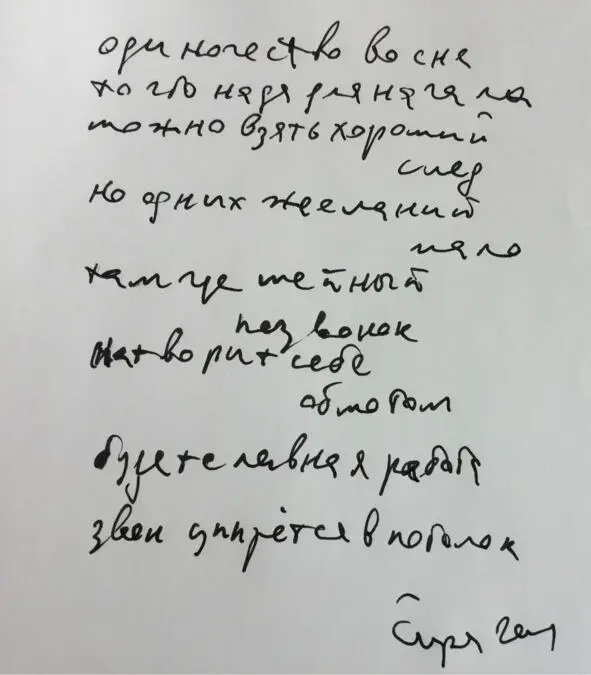 одиночество во сне
того надя для начала
можно взять хороший
след
но одних жееланий
мало
там где шейный
позвонок
натворит себе
обмотом
будет славная работа
звен упрётся в потолок